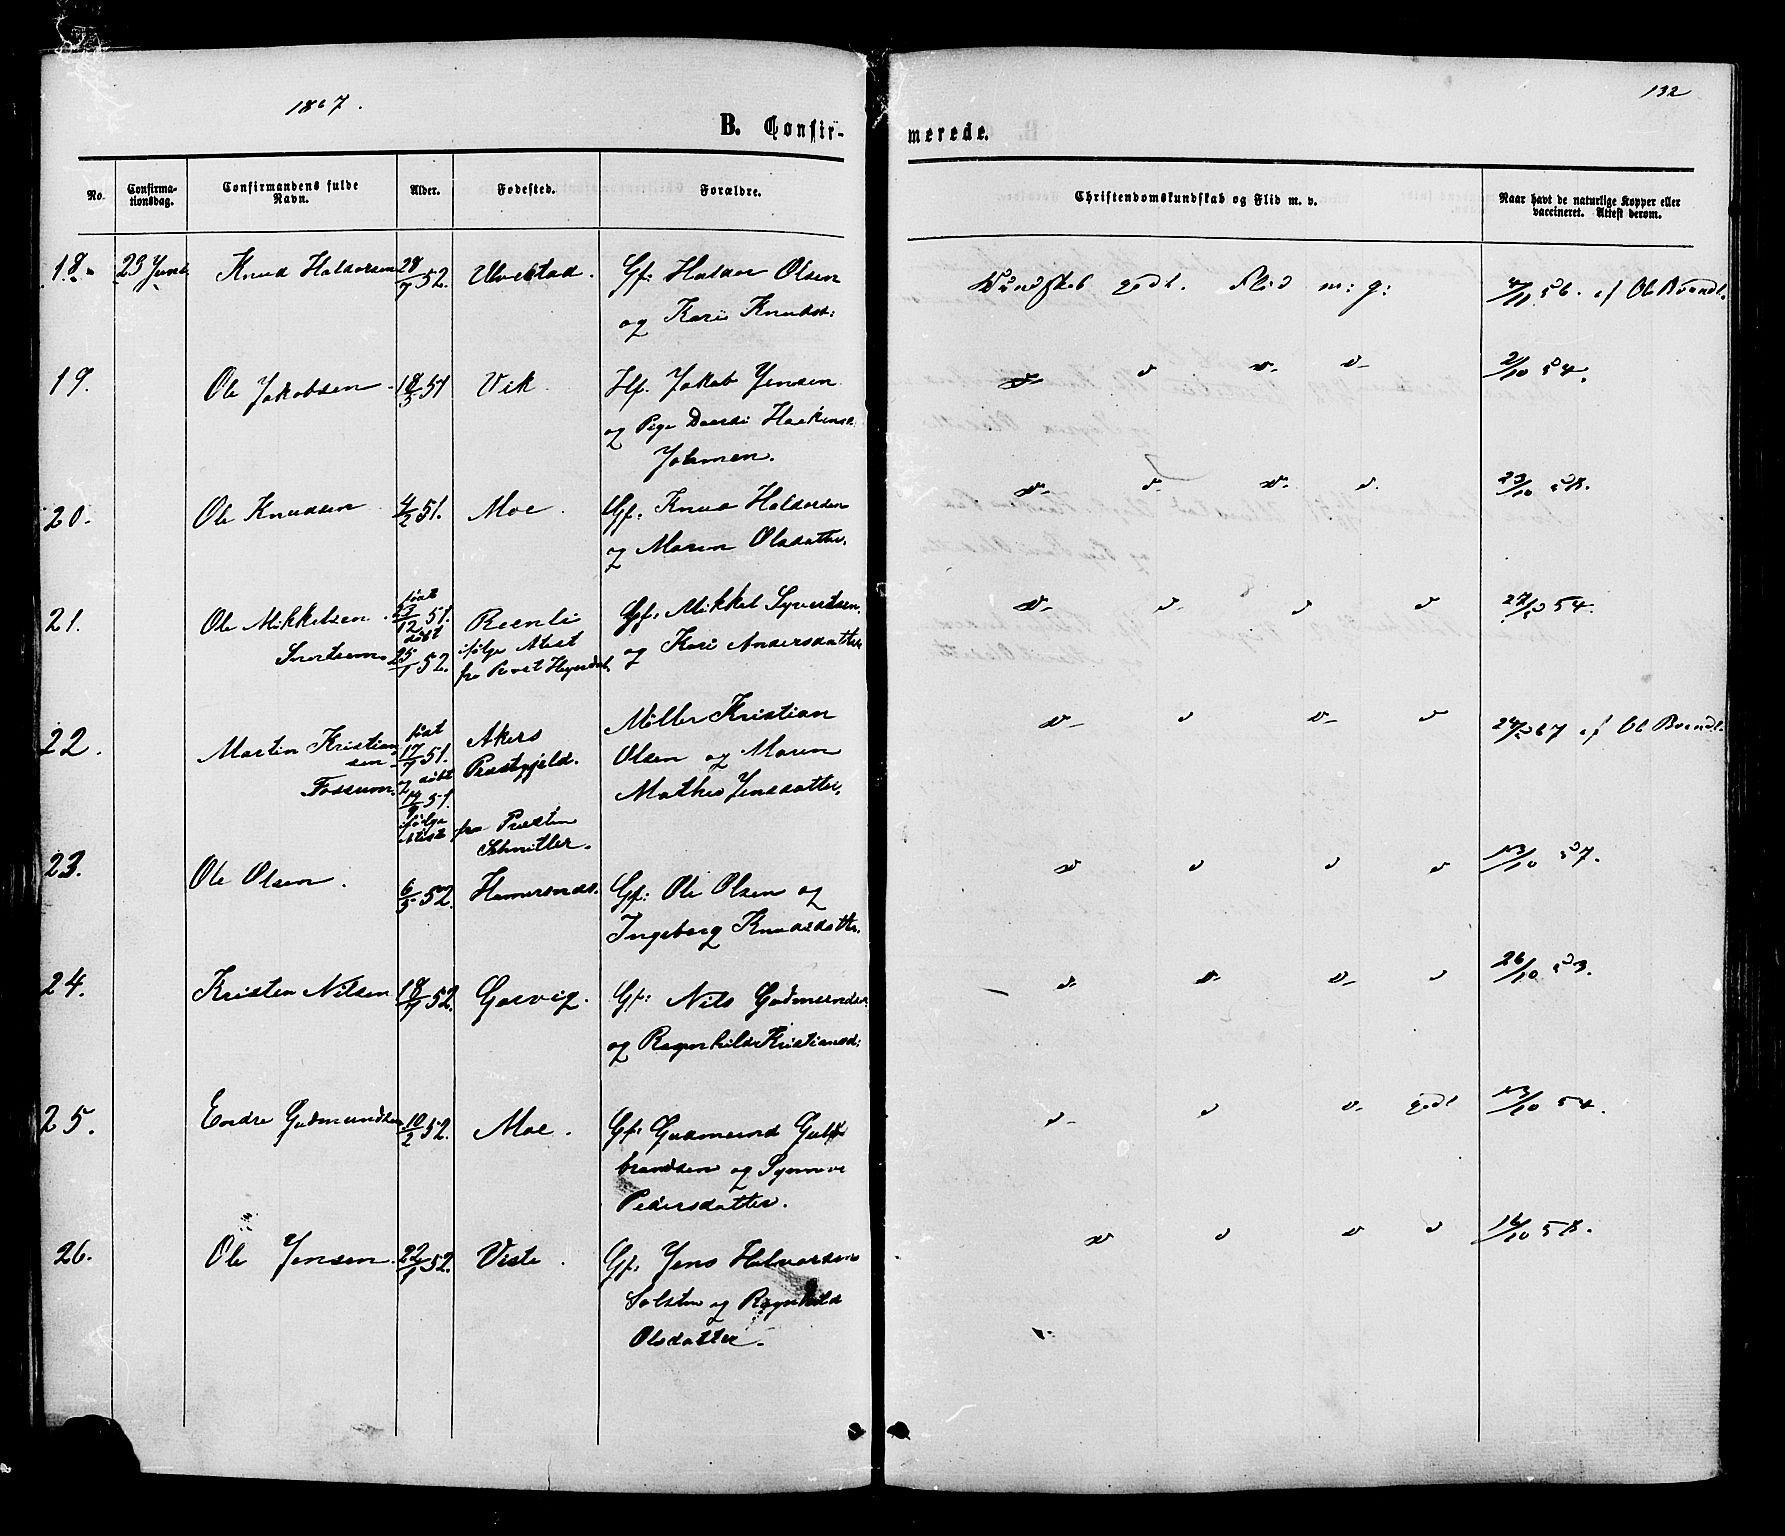 1867.
132
B. Confir-
merede.
No.
Confirma-
tionsdag.
Confirmandens fulde
Navn.
Alder.
Fødested.
Forældre.
Christendomskundskab og Flid m. v.
Naar havt de naturlige Kopper eller
vaccineret. Attest derom.
18. 23 Juni Knud Haldorsen 28/7 52. Ulvestad. Gf: Haldor Olsen
og Kari Knudsd:
Kundskab godt. Flid m: g:
4/11 56. af Ol Brandt.
19. Ole Jakobsen 18/5 51 Vik. Hf. Jakob Jensen
og Pige
v v v v
2/10 54.
20. Ole Knudsen 4/2 51. Moe. Gf: Knud Haldorsen
og Maren Olsdatter.
v v v v
23/10 58.
21. Ole Mikkelsen
født
23/12 51.
døbt
25/1 52.
ifølge Attest
Gf: Mikkel Syvertsen
og Kari Andersdatter
v v v v
54.
22. Martin Kristian-
sen
Fossum.
født
17/7 51.
og døbt
14/9 51.
ifølge
Attest
Akers
Præstegjeld.
fra Præsten
Schnitler.
Møller Kristian
Olsen og Maren
Mathea Jensdatter.
v v v v
67 af Ol Brandt.
23. Ole Olsen. 6/5 52. Gf: Ole Olsen og
Ingeborg Knudsdatter.
v v v v
13/10 57.
24. Kristen Nilsen 18/7 52. Gf: Nils Gudmundsen
og Ragnhild Kristiansd:
v v v v
26/10 53.
25. Endre Gudmundsen 10/2 52. Moe. Gf: Gudmund Gul-
brandsen og Synnøve
Pedersdatter.
v v v godt
13/10 54.
26. Ole Jensen. 22/1 52. Viste. Gf: Jens Halvorsen
Solsten og Ragnhild
Olsdatter.
v v v v
16/10 58.